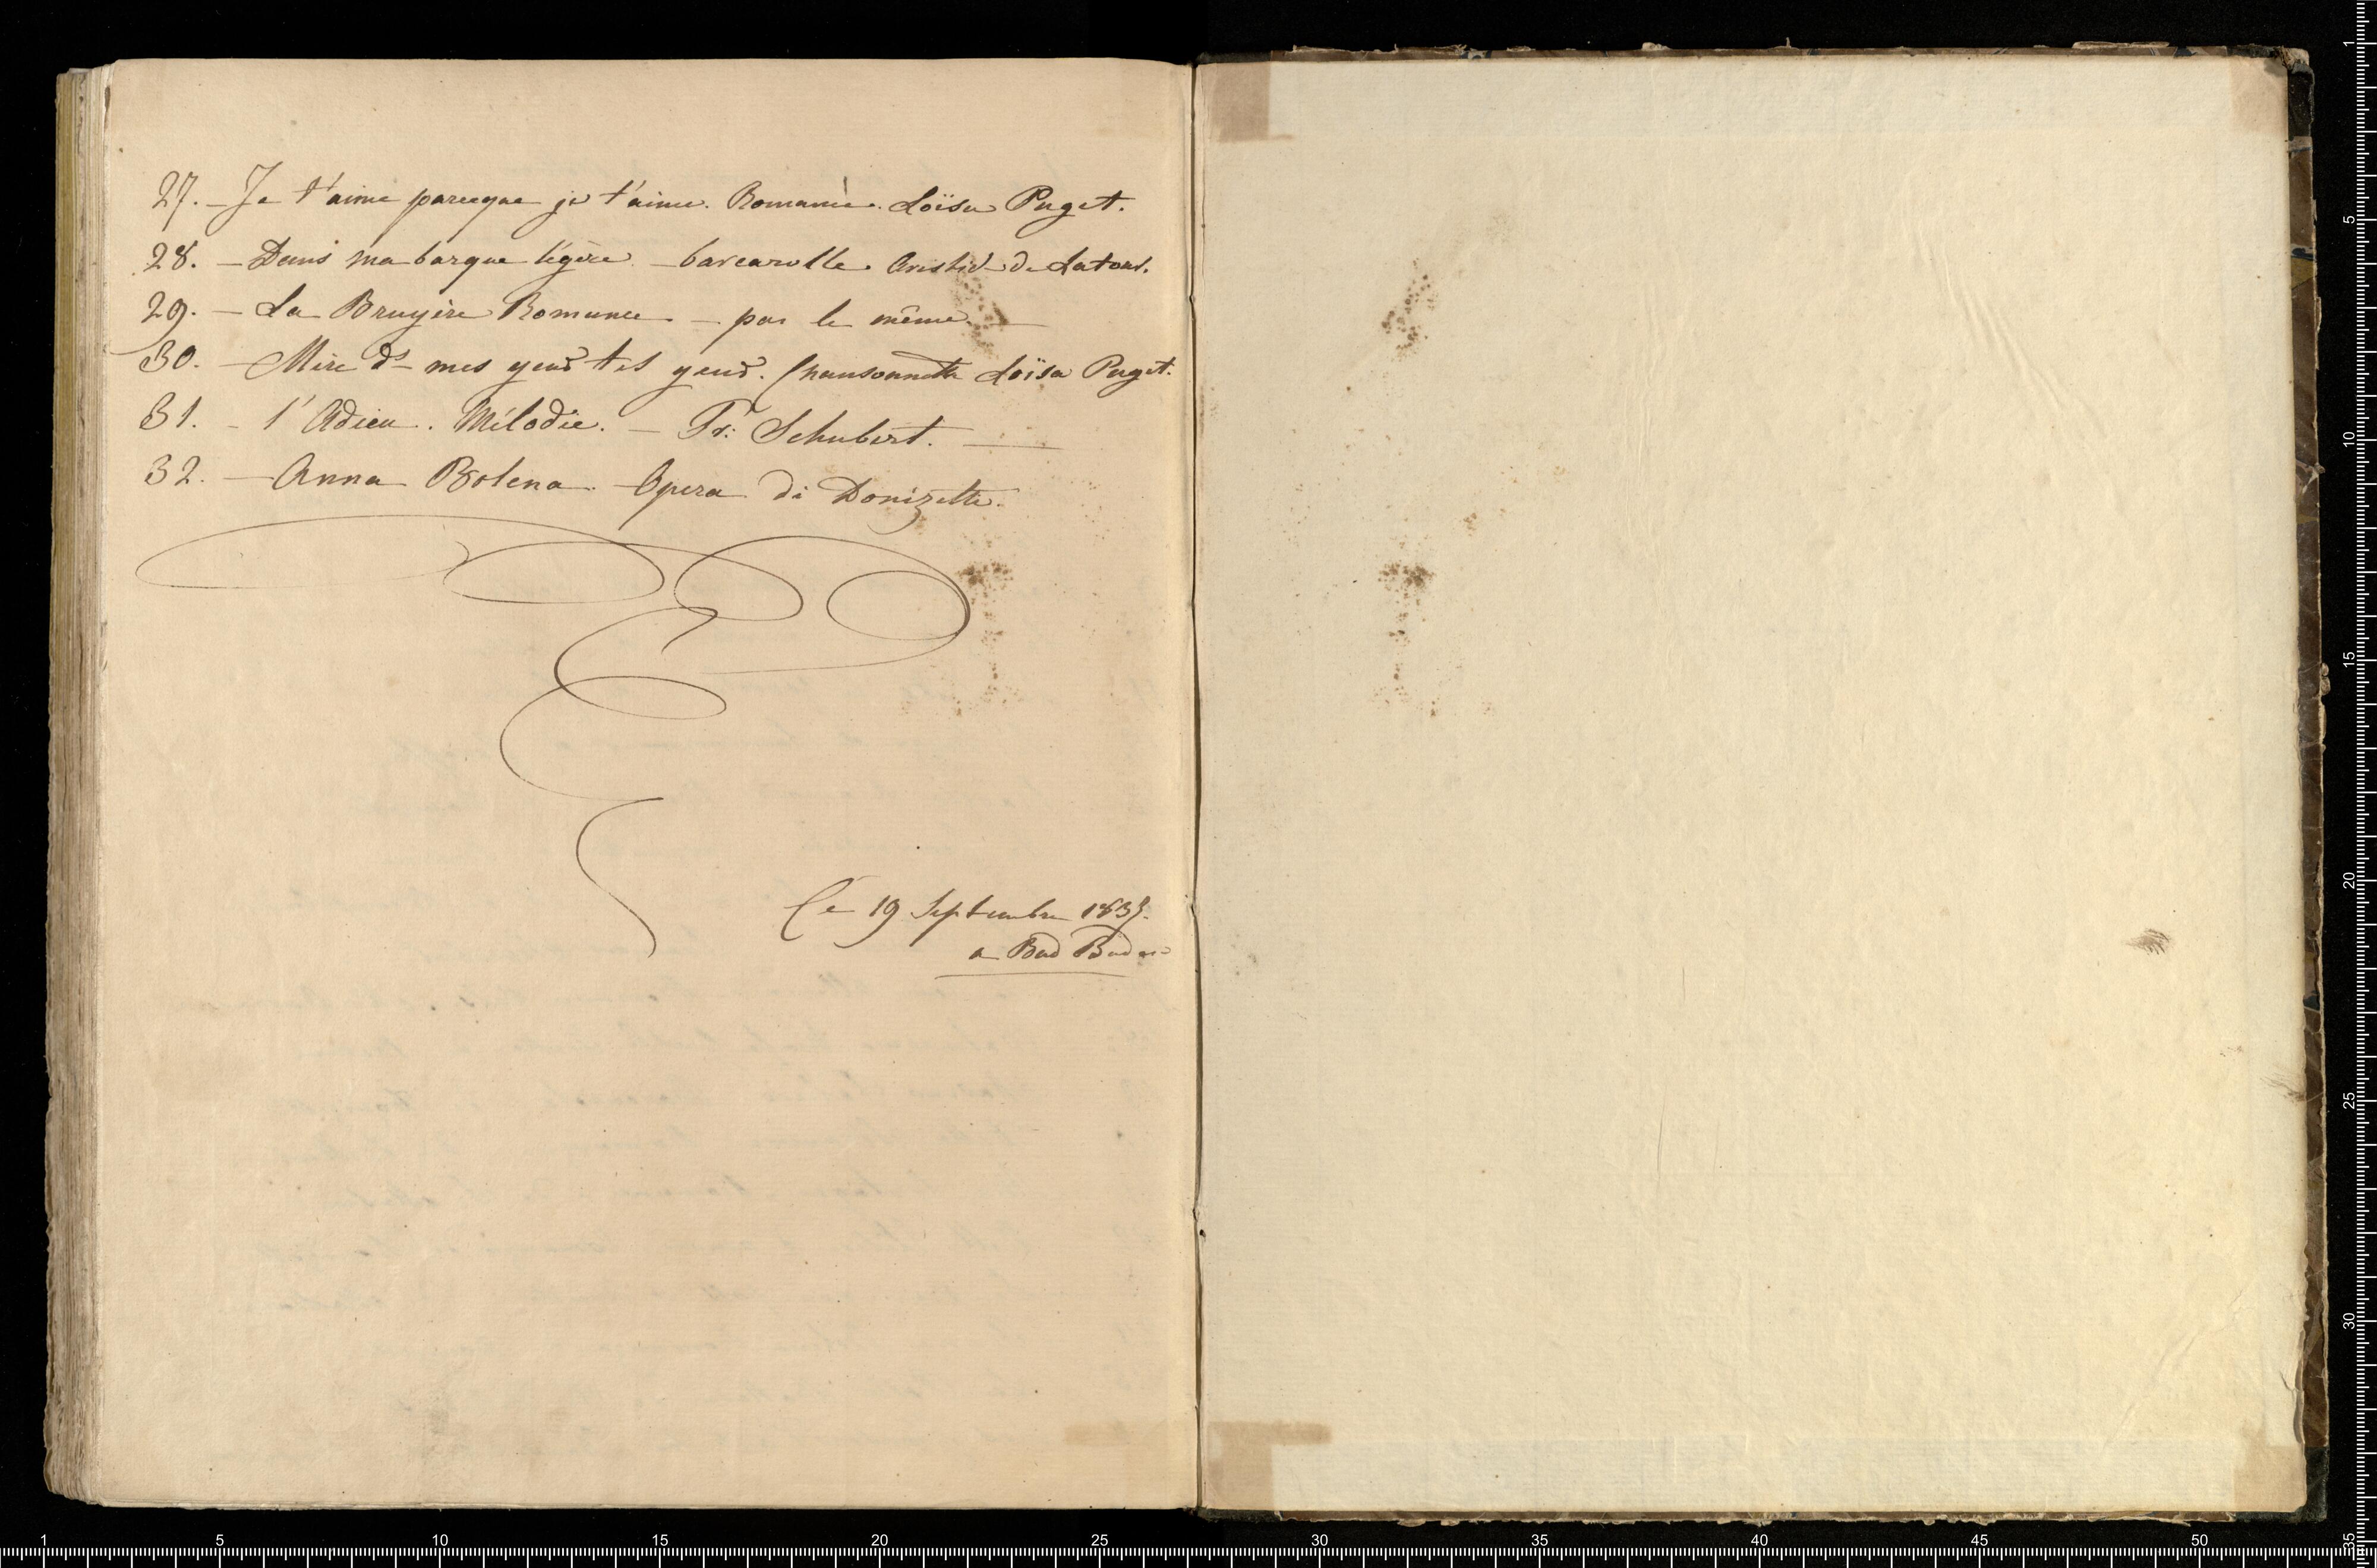 27. – Je t'aime parceque je t'aime. Romance. Loïsa Puget.
28. – Dans ma barque légère – barcarolle. Aristide de Latour.
29. – La Bruyère Romance. – par le même. –
30. – Mire ds mes yeux tes yeux. Chansonnette Loïsa Puget.
31. – l'Adieu. Mélodie. – Fr: Schubert. –
32. – Anna Bolena. Opera di Donizetti.
Ce 19 Septembre
a Bad Baden
1 5 10 15 20 25 30 35 40 45 50
1 5 10 15 20 25 30 35